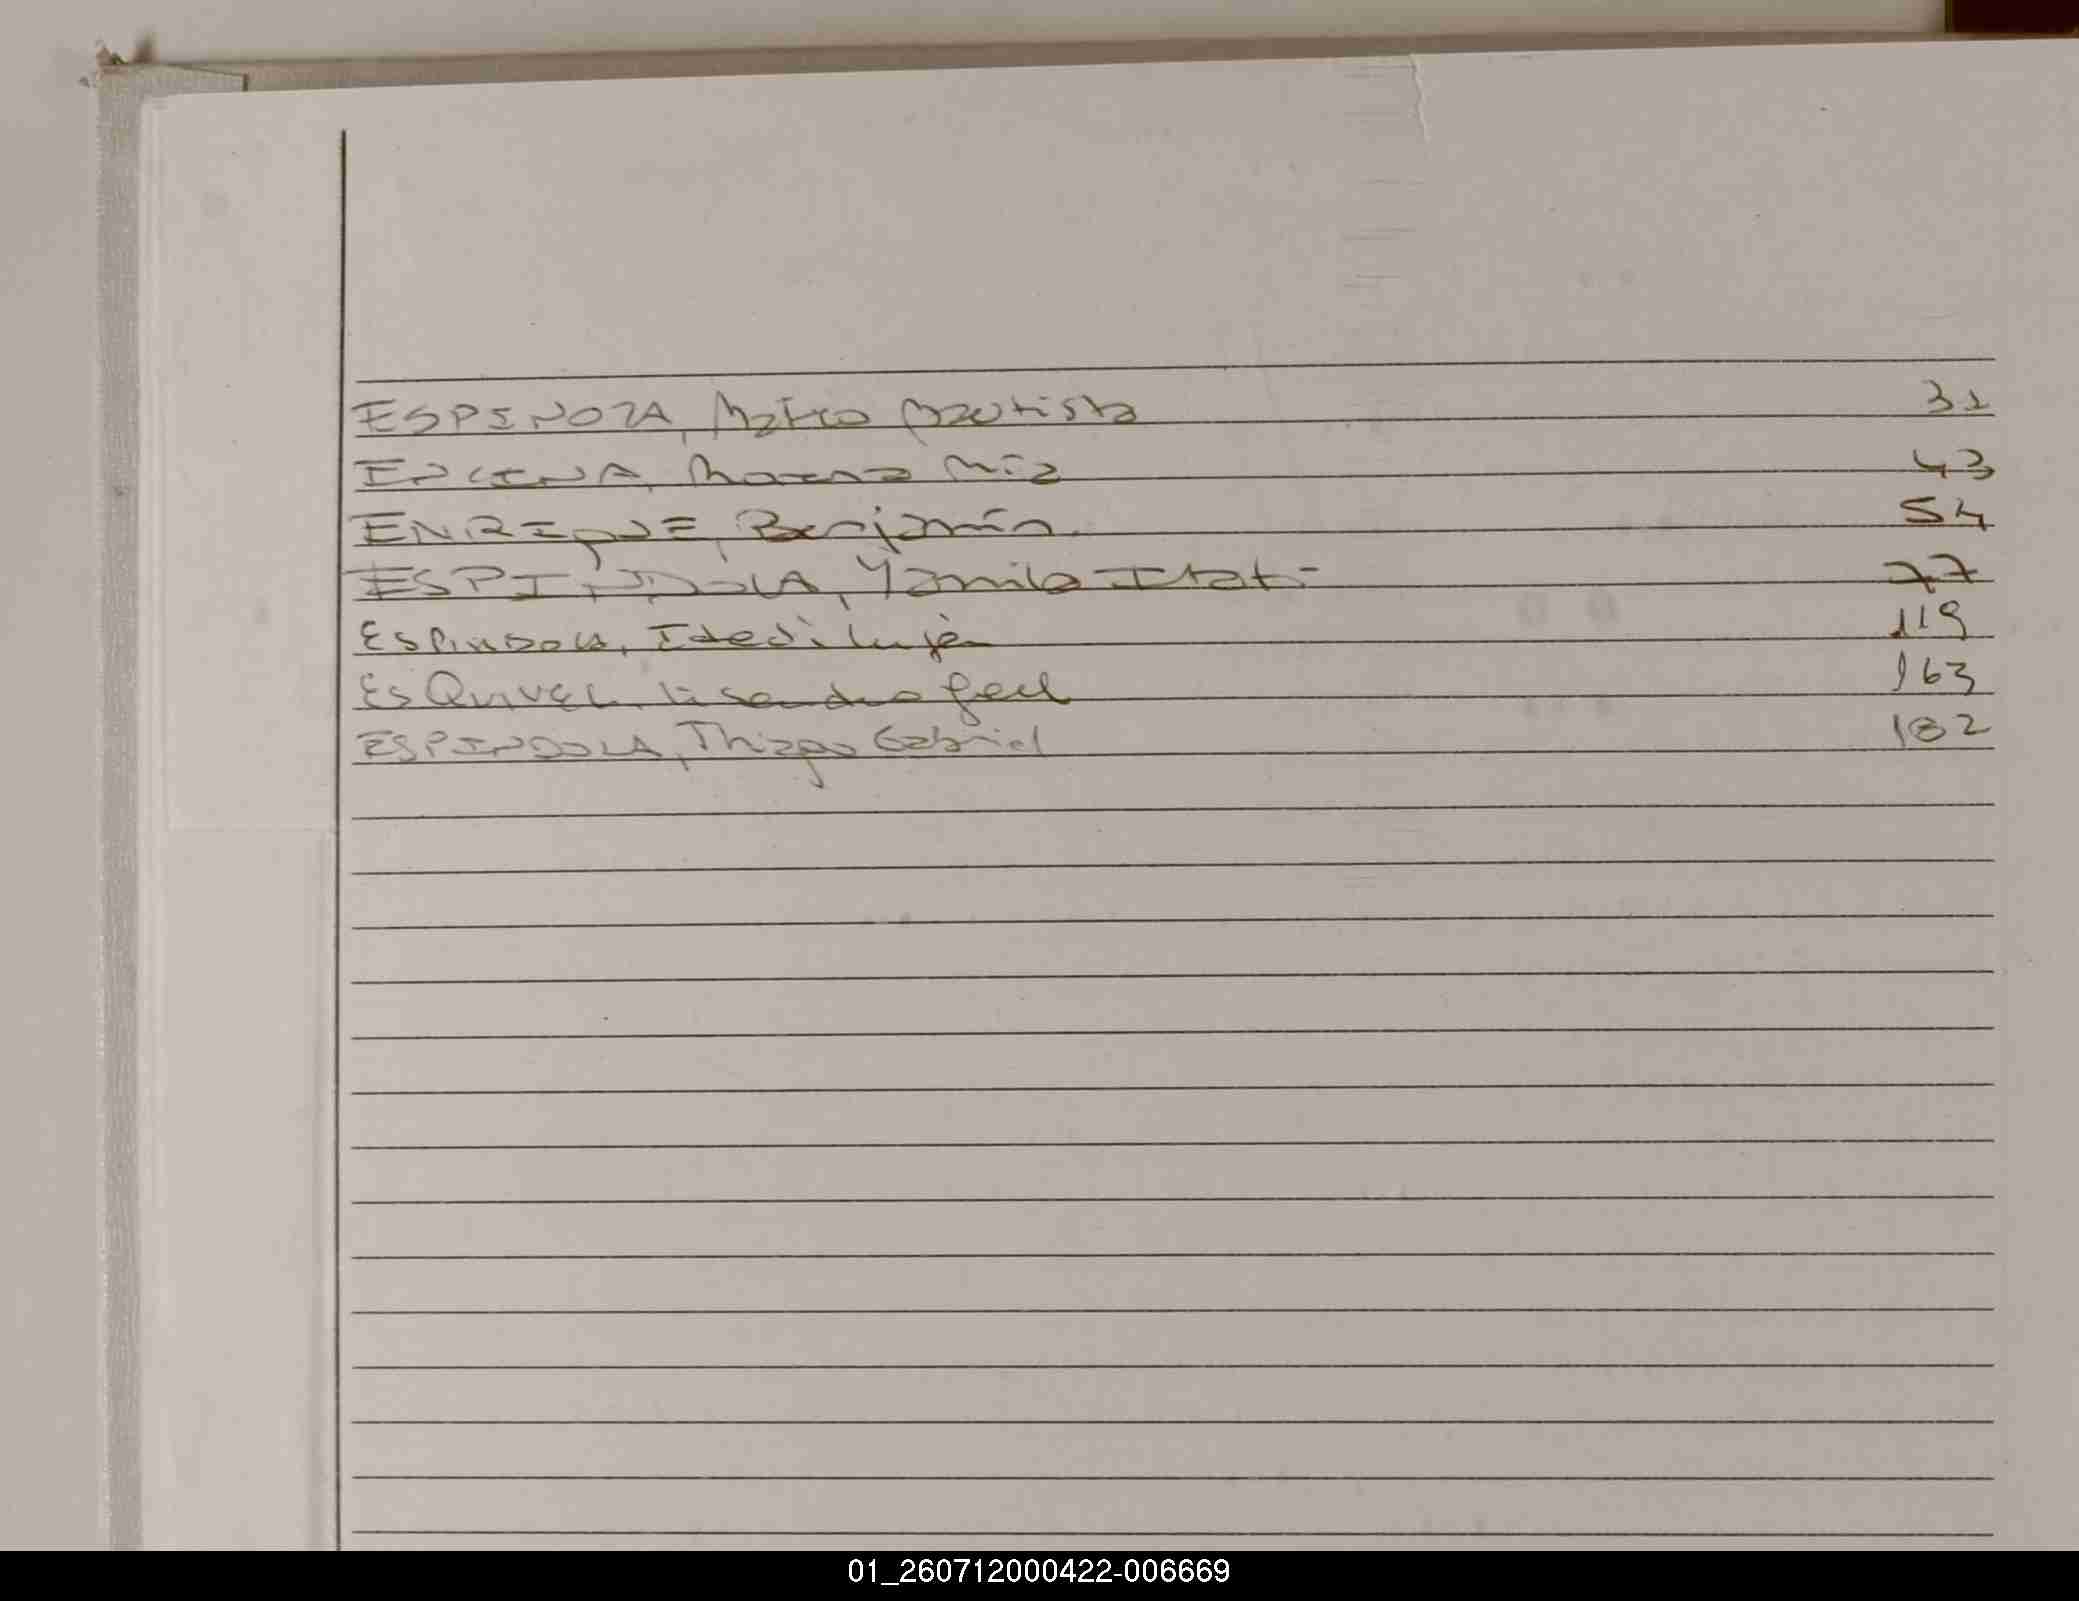 ESPINOZA, Mateo Bautista 31
ENCINA, Morena Mia 43
ENRIQUE, Benjamín 54
ESPINDOLA, Yamila Itati 77
ESPINDOLA, Luján 119
ESQUIVEL, Lisandro 163
ESPINDOLA, Thiago Gabriel 182
01_260712000422-006669